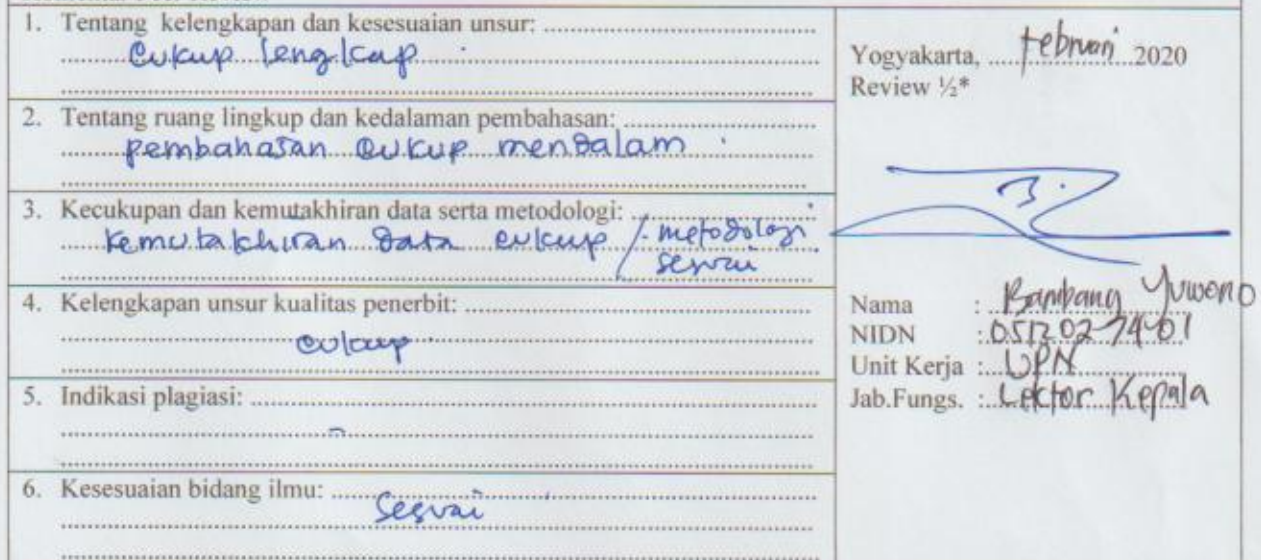 1. Tentang kelengkapan dan kesesuaian unsur: ........
cukup lengkap
2. Tentang ruang lingkup dan kedalaman pembahasan: ........
pembahasan cukup mendalam
3. Kecukupan dan kemutakhiran data serta metodologi: ........
Kemutakhiran data cukup / metodologi
sesuai
4. Kelengkapan unsur kualitas penerbit: ........
cukup
5. Indikasi plagiasi: ........
-
6. Kesesuaian bidang ilmu: ........
Sesuai
Yogyakarta, februari 2020
Review ½*
Nama : Bambang Yuwono
NIDN : 0512027401
Unit Kerja : UPN
Jab.Fungs. : Lektor Kepala